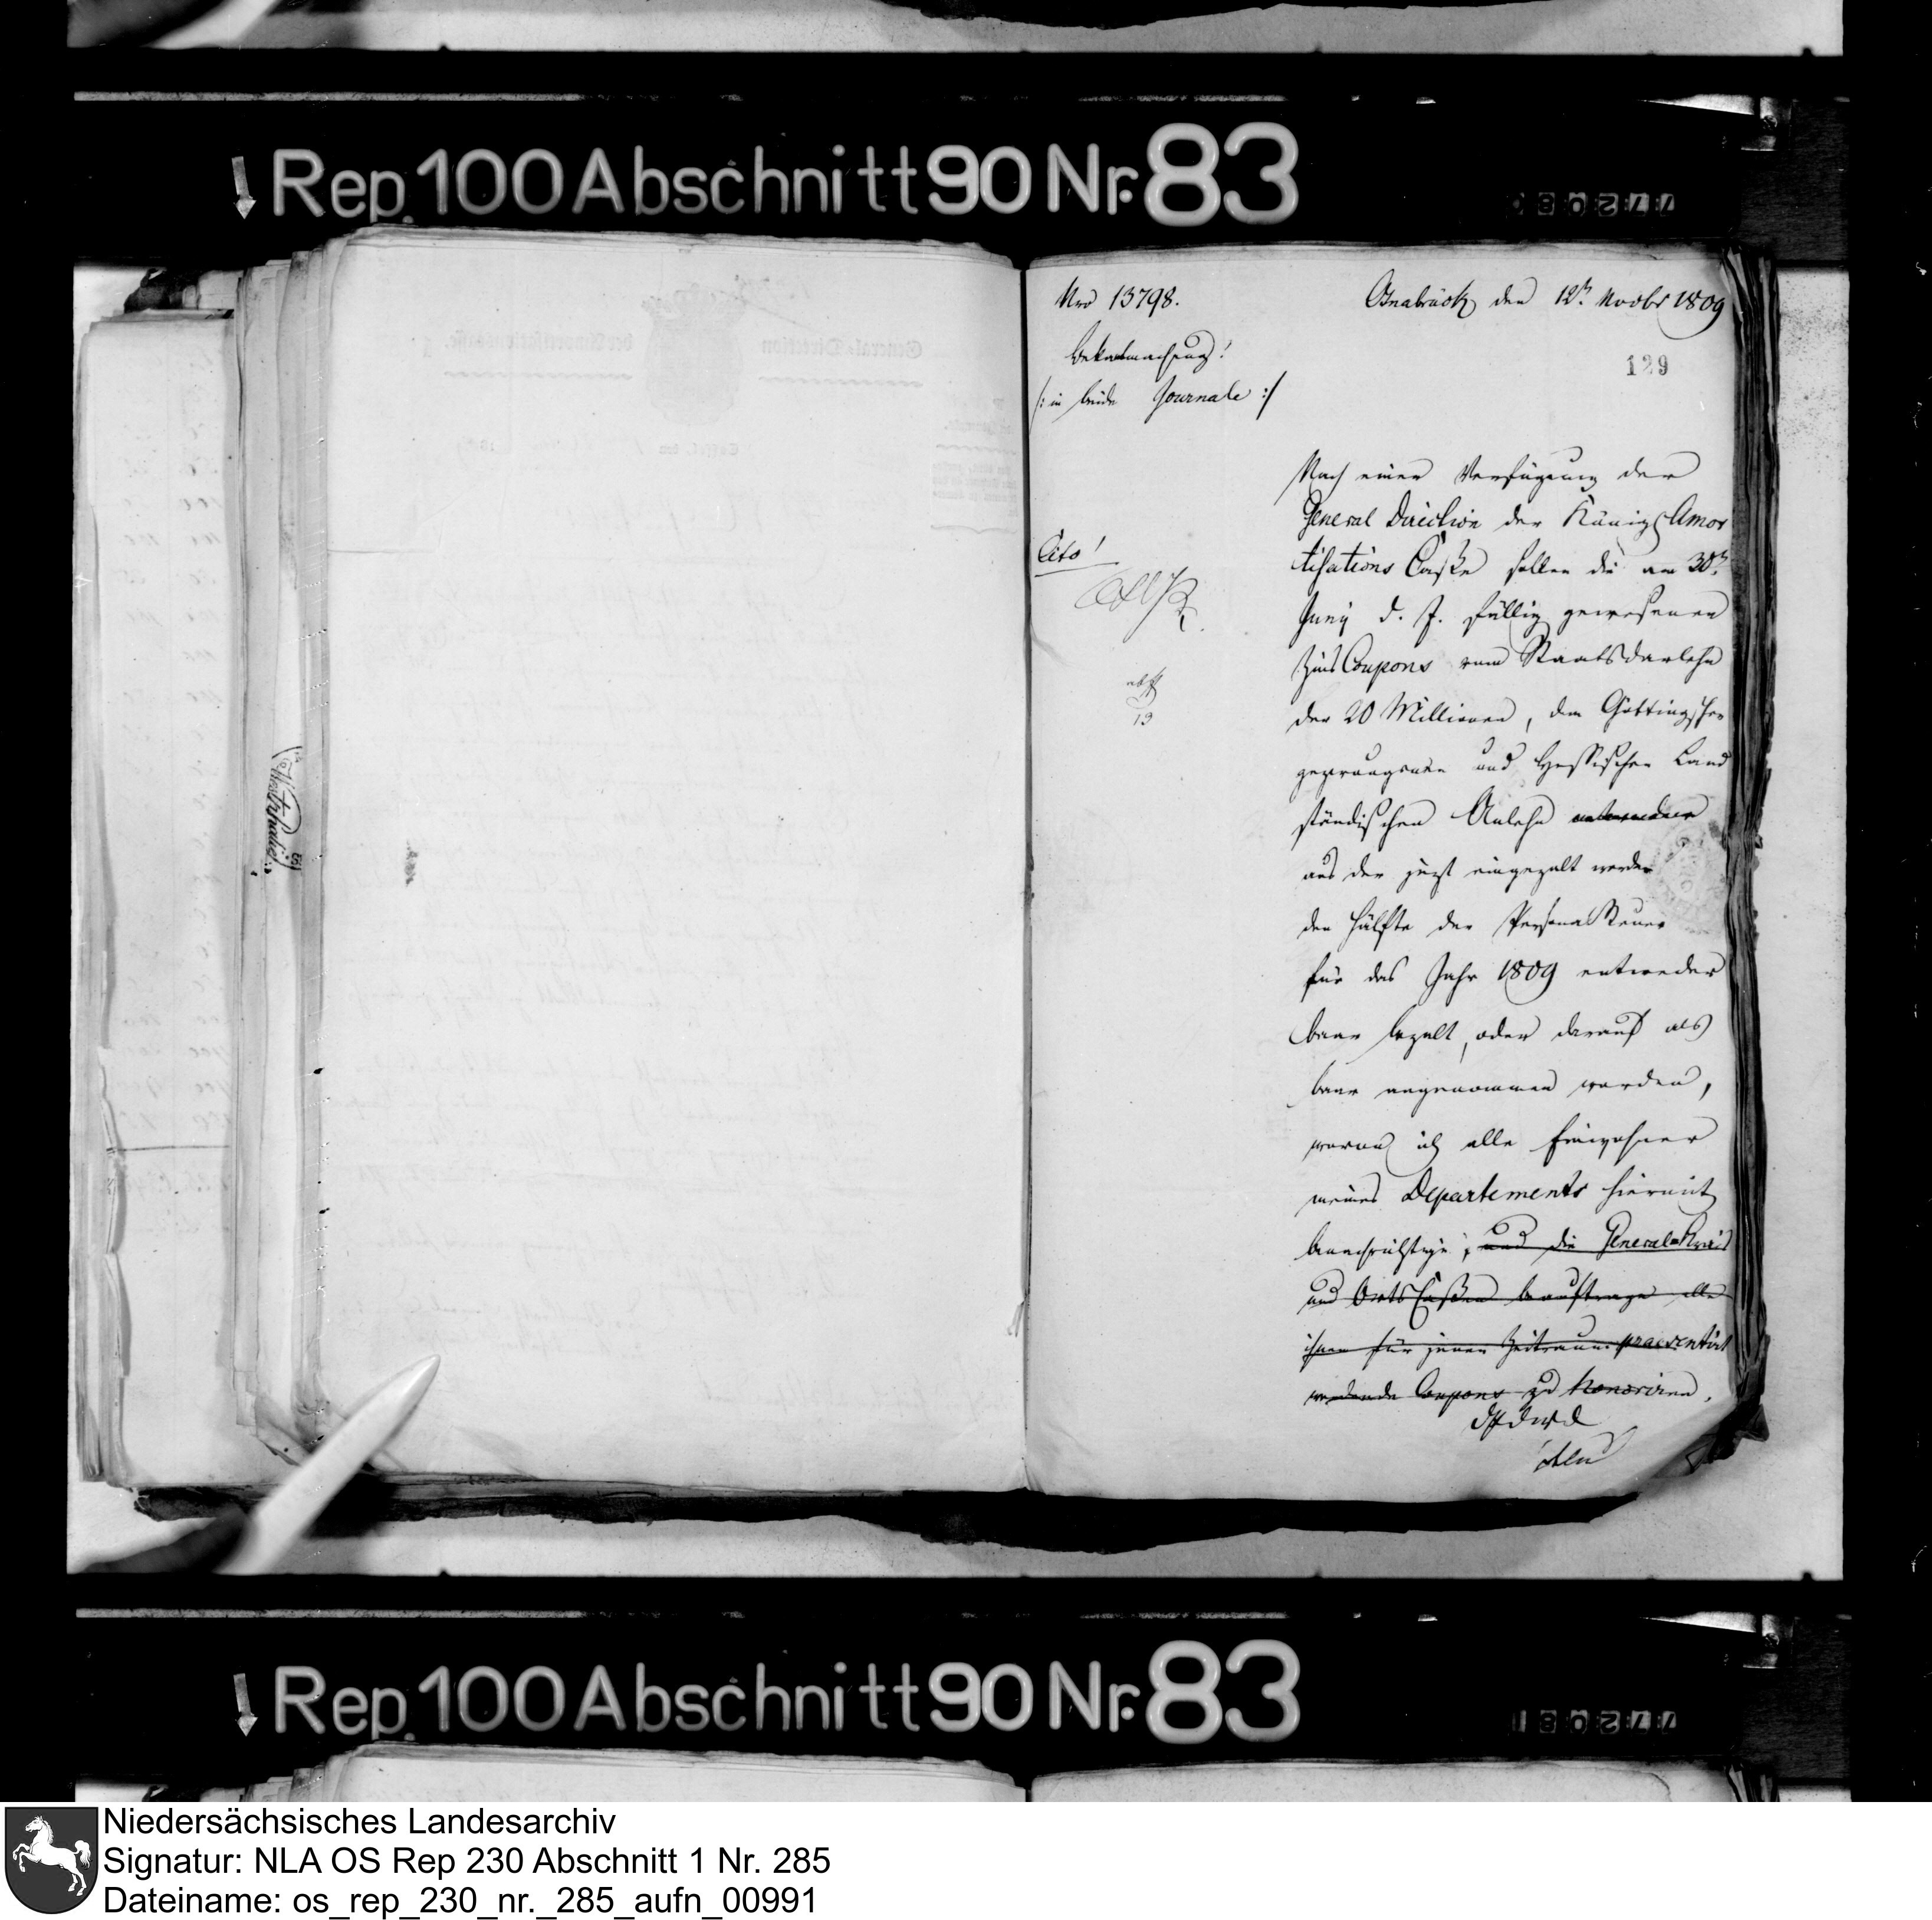 Rep. 100 Abschnitt 90 Nr. 83
Nro 13798.
Osnabrück den 12t. Novbr 1809
129
Bekantmachung!
/: in beide Journale :/
Cito!
Nach einer Verfügung der
General Direction der Königl Amor
tisations Casse sollen die am 30t.
Juny d. J. fällig gewesenen
Zins Coupons vom Staatsdarlehn
der 20 Millionen, dem Göttingschen
gezwungenen und Hessischen Land
ständischen Anlehn entweder
aus der jezt eingezalt werden
den Hälfte der Personal Steuer
für das Jahr 1809 entweder
baar bezalt, oder darauf als
baar angenommen werden,
wovon ich alle Einwohner
meines Departements hiermit
benachrichtige, und die General-Kreis
und Orts Cassen beauftrage alle
ihnen für jenen Zeitraum praesentirt
werdende Coupons zu honoriren.
Rep. 100 Abschnitt 90 Nr. 83
Niedersächsisches Landesarchiv
Signatur: NLA OS Rep 230 Abschnitt 1 Nr. 285
Dateiname: os_rep_230_nr._285_aufn_00991